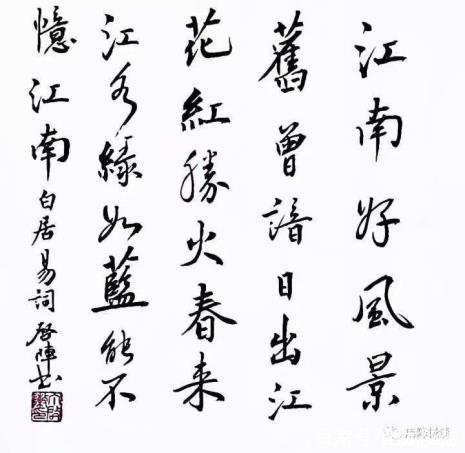 江南好風景
舊曾諳日出江
花紅勝火春来
江水綠如藍能不
憶江南白居易詞啓陣书